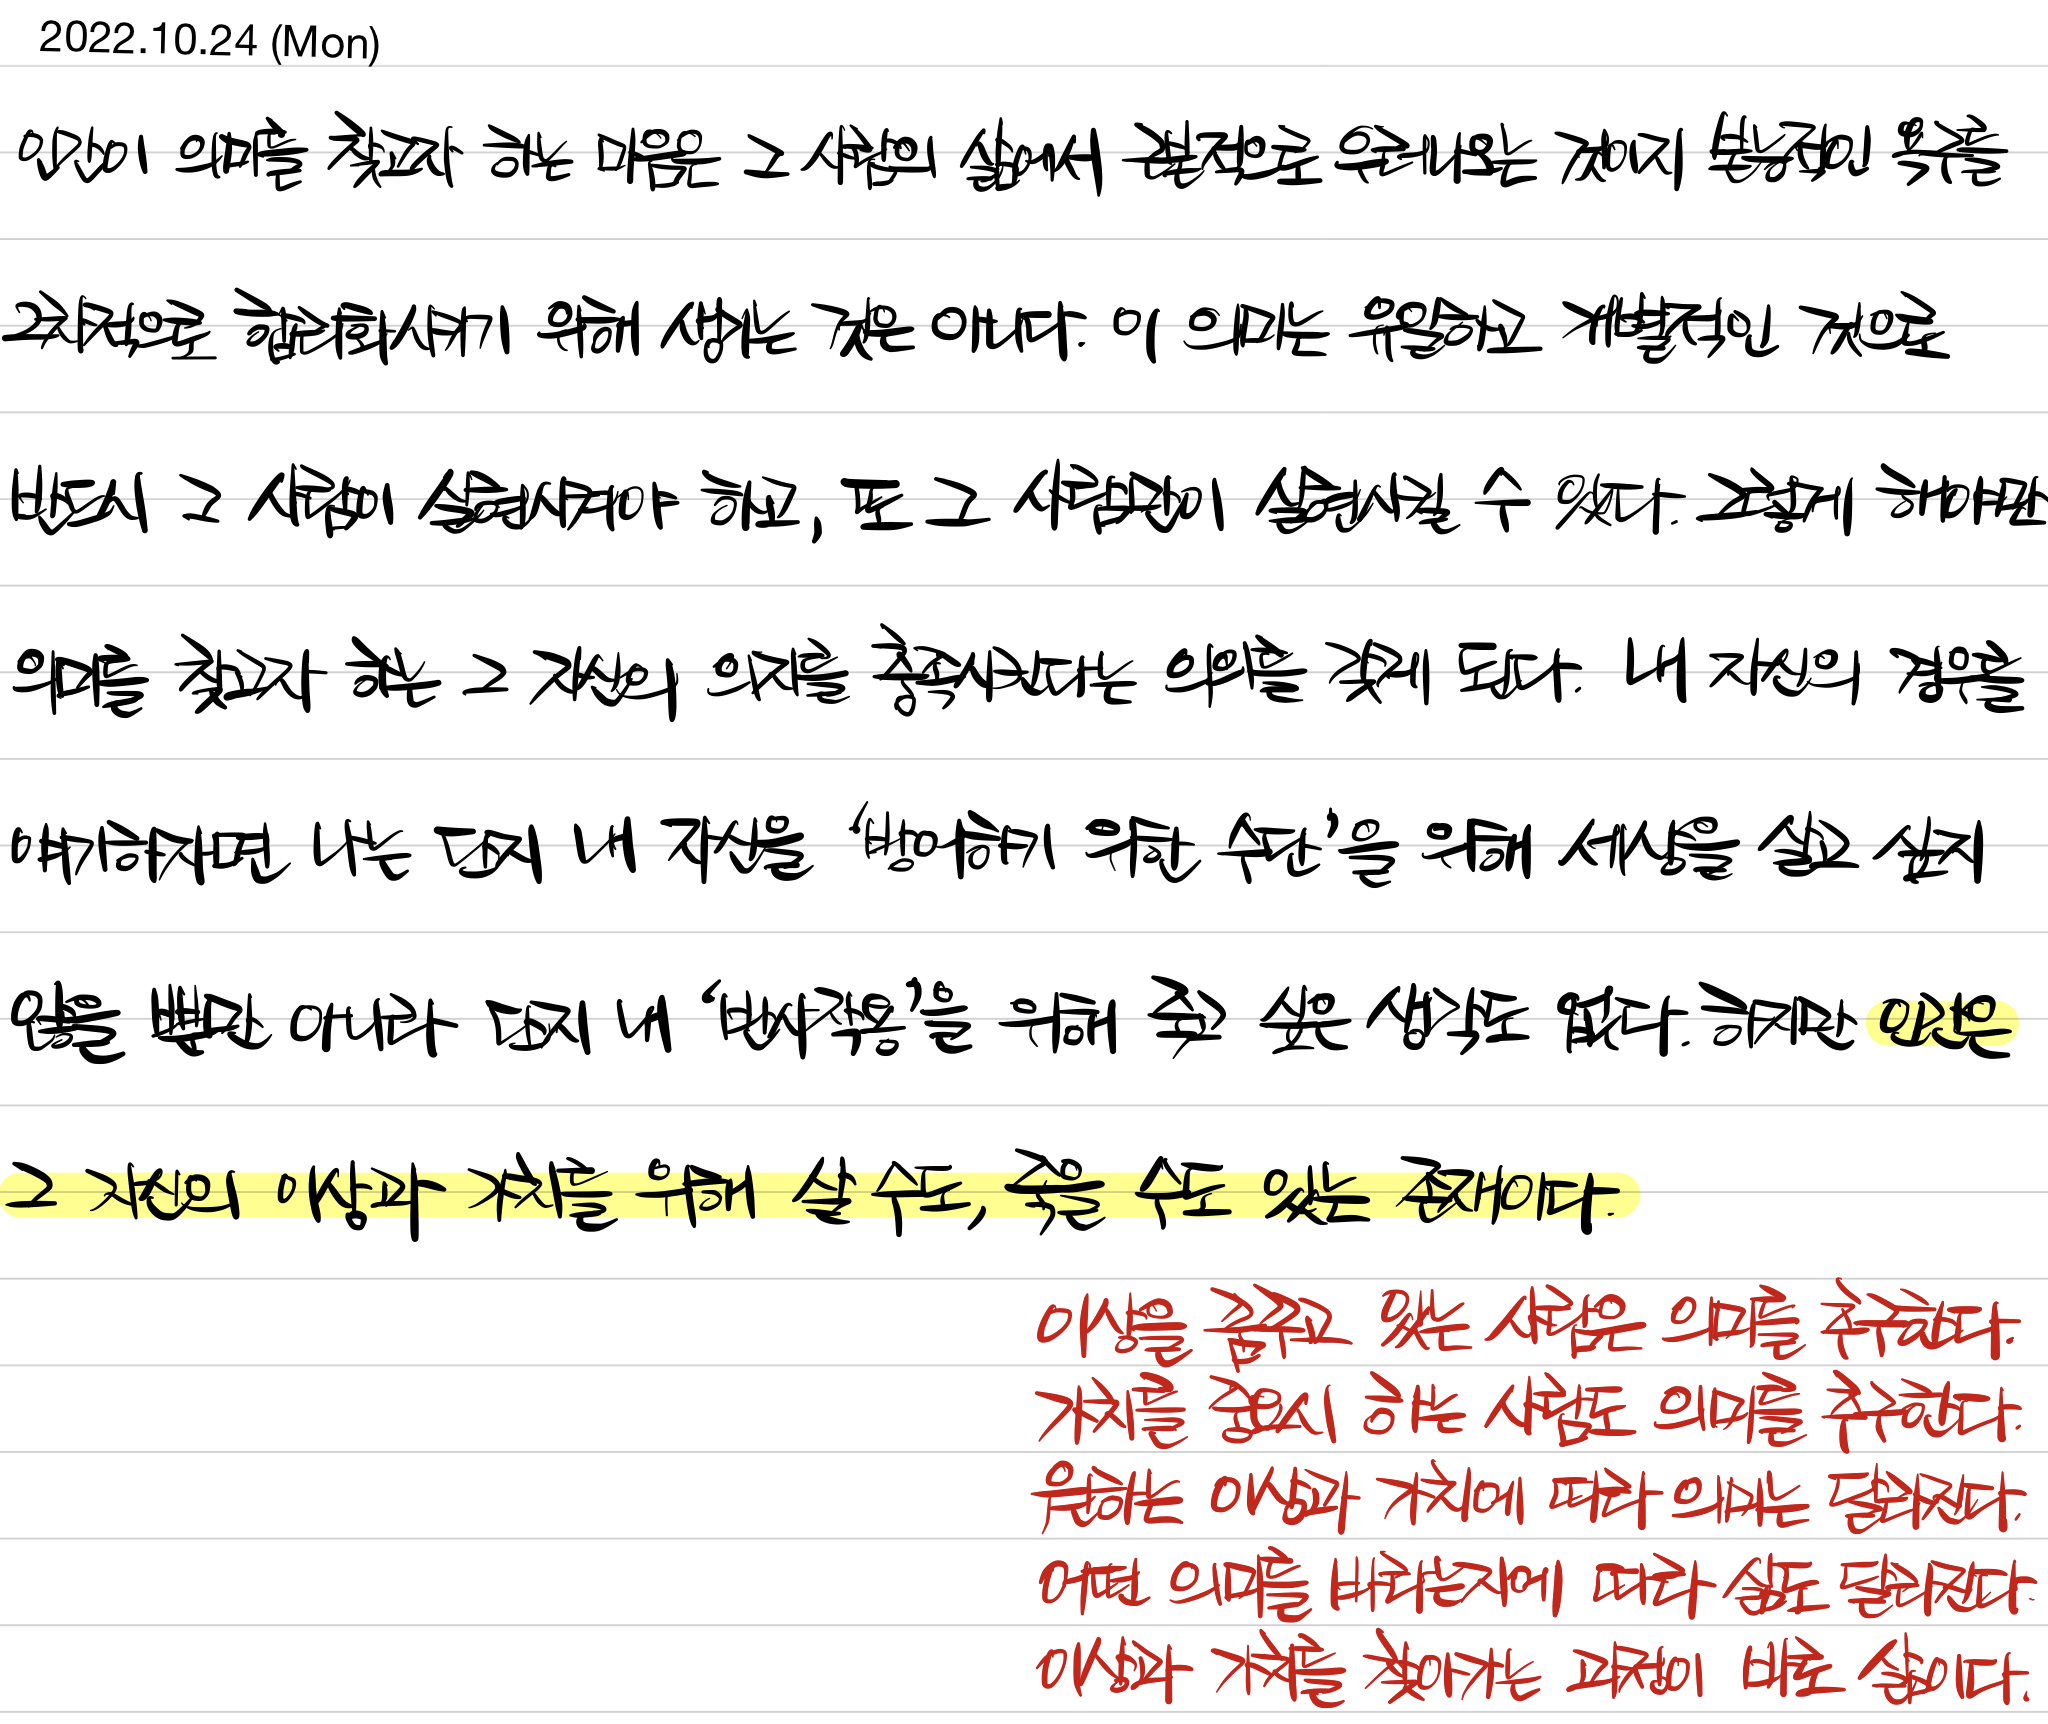 2022.10.24 (Mon)
인간이 의미를 찾고자 하는 마음은 그 사람의 삶에서 근본적으로 우러나오는 것이지 본능적인 욕구를
2차적으로 합리화시키기 위해 생기는 것은 아니다. 이 의미는 유일하고 개별적인 것으로
반드시 그 사람이 실현시켜야 하고, 또 그 사람만이 실현시킬 수 있다. 그렇게 해야만
의미를 찾고자 하는 그 자신의 의지를 충족시킨다는 의의를 갖게 된다. 내 자신의 경우를
얘기하자면 나는 단지 내 자신을 '방어하기 위한 수단'을 위해 세상을 살고 싶지
않을 뿐만 아니라 단지 내 '반사작용'을 위해 죽고 싶은 생각도 없다. 하지만 인간은
그 자신의 이상과 가치를 위해 살 수도, 죽을 수도 있는 존재이다.
이상을 꿈꾸고 있는 사람은 의미를 추구한다.
가치를 중요시 하는 사람도 의미를 추구한다.
원하는 이상과 가치에 따라 의미는 달라진다.
어떤 의미를 바라는지에 따라 삶도 달라진다.
이상과 가치를 찾아가는 과정이 바로 삶이다.